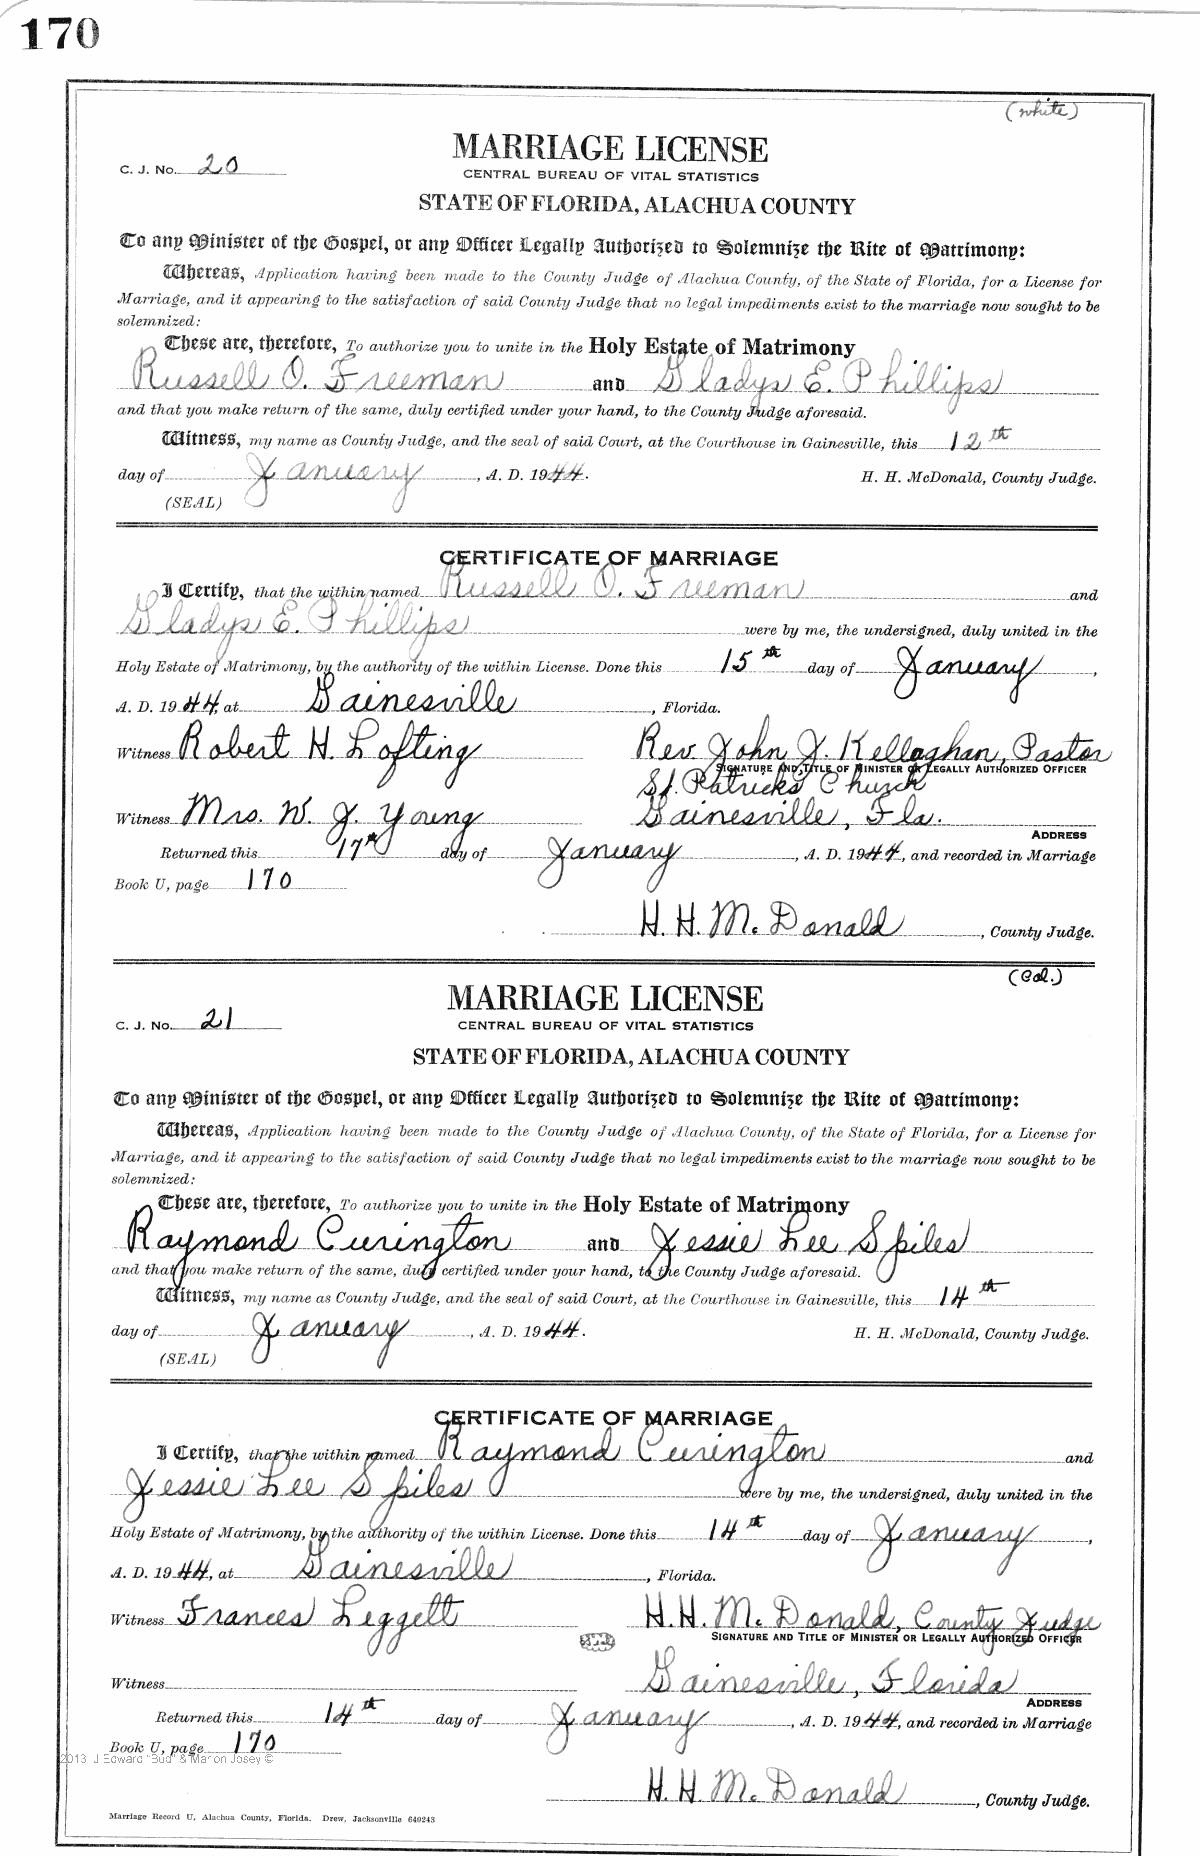 170
(white)
MARRIAGE LICENSE
C. J. No. 20
CENTRAL BUREAU OF VITAL STATISTICS
STATE OF FLORIDA, ALACHUA COUNTY
To any Minister of the Gospel, or any Officer Legally Authorized to Solemnize the Rite of Matrimony:
Whereas, Application having been made to the County Judge of Alachua County, of the State of Florida, for a License for
Marriage, and it appearing to the satisfaction of said County Judge that no legal impediments exist to the marriage now sought to be
solemnized:
These are, therefore, To authorize you to unite in the Holy Estate of Matrimony
Russell O. Freeman and Gladys E. Phillips
and that you make return of the same, duly certified under your hand, to the County Judge aforesaid.
Witness, my name as County Judge, and the seal of said Court, at the Courthouse in Gainesville, this 12th
day of January, A. D. 1944. H. H. McDonald, County Judge.
(SEAL)
CERTIFICATE OF MARRIAGE
I Certify, that the within named Russell O. Freeman and
Gladys E. Phillips were by me, the undersigned, duly united in the
Holy Estate of Matrimony, by the authority of the within License. Done this 15th day of January,
A. D. 1944, at Gainesville, Florida.
Witness Robert H. Lofting Rev. John J. Kellaghan, Pastor
SIGNATURE AND TITLE OF MINISTER OR LEGALLY AUTHORIZED OFFICER
St. Patricks Church
Witness Mrs. W. J. Young Gainesville, Fla.
ADDRESS
Returned this 17th day of January, A. D. 1944, and recorded in Marriage
Book U, page 170
H. H. McDonald, County Judge.
(Col.)
MARRIAGE LICENSE
C. J. No. 21
CENTRAL BUREAU OF VITAL STATISTICS
STATE OF FLORIDA, ALACHUA COUNTY
To any Minister of the Gospel, or any Officer Legally Authorized to Solemnize the Rite of Matrimony:
Whereas, Application having been made to the County Judge of Alachua County, of the State of Florida, for a License for
Marriage, and it appearing to the satisfaction of said County Judge that no legal impediments exist to the marriage now sought to be
solemnized:
These are, therefore, To authorize you to unite in the Holy Estate of Matrimony
Raymond Curington and Jessie Lee Spiles
and that you make return of the same, duly certified under your hand, to the County Judge aforesaid.
Witness, my name as County Judge, and the seal of said Court, at the Courthouse in Gainesville, this 14th
day of January, A. D. 1944. H. H. McDonald, County Judge.
(SEAL)
CERTIFICATE OF MARRIAGE
I Certify, that the within named Raymond Curington and
Jessie Lee Spiles were by me, the undersigned, duly united in the
Holy Estate of Matrimony, by the authority of the within License. Done this 14th day of January,
A. D. 1944, at Gainesville, Florida.
Witness Frances Leggett H. H. McDonald, County Judge
SIGNATURE AND TITLE OF MINISTER OR LEGALLY AUTHORIZED OFFICER
Seal
Witness Gainesville, Florida
ADDRESS
Returned this 14th day of January, A. D. 1944, and recorded in Marriage
Book U, page 170
2013 J Edward "Bud" & Marion Josey ©
H. H. McDonald, County Judge.
Marriage Record U, Alachua County, Florida. Drew, Jacksonville 640243